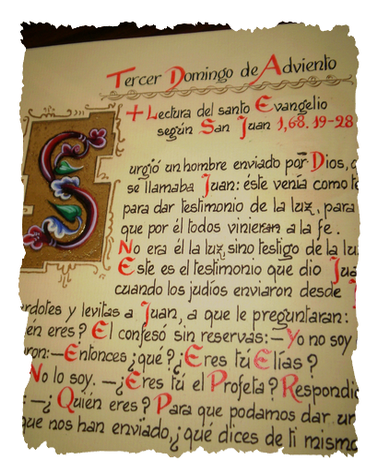 Tercer Domingo de Adviento
+ Lectura del santo Evangelio
según San Juan 1,68. 19-28
Surgió un hombre enviado por Dios,
se llamaba Juan: éste venía como
para dar testimonio de la luz, para
que por él todos vinieran a la fe.
No era él la luz, sino testigo de la
Este es el testimonio que dio
cuando los judíos enviaron desde
y levitas a Juan, a que le preguntaran:
eres? El confesó sin reservas: – Yo no soy
– Entonces ¿qué? ¿Eres tú Elías?
No lo soy. – ¿Eres tú el Profeta?
: – ¿Quién eres? Para que podamos dar
que nos han enviado, ¿qué dices de ti mismo